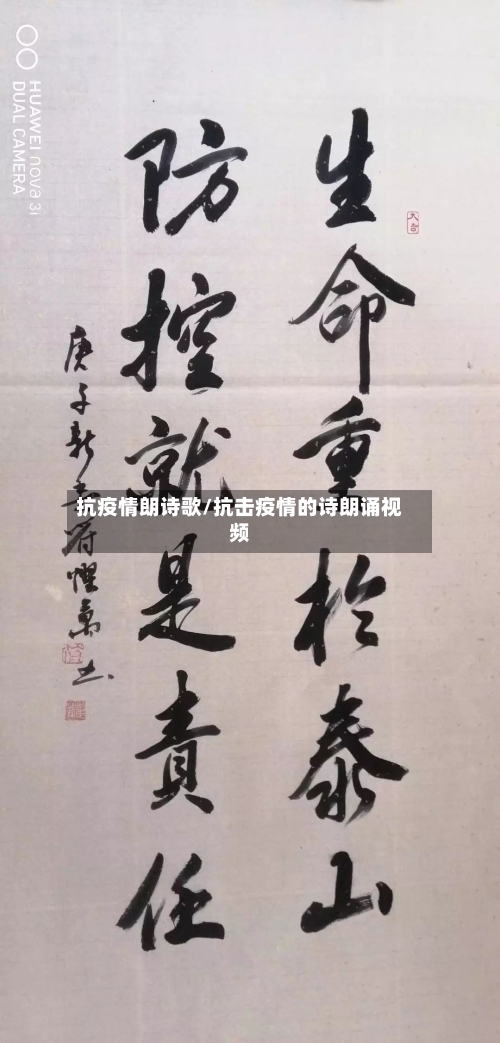 生命重於泰山
防控就是責任
抗疫情朗诗歌/抗击疫情的诗朗诵视
频
HUAWEI nova 3i
DUAL CAMERA